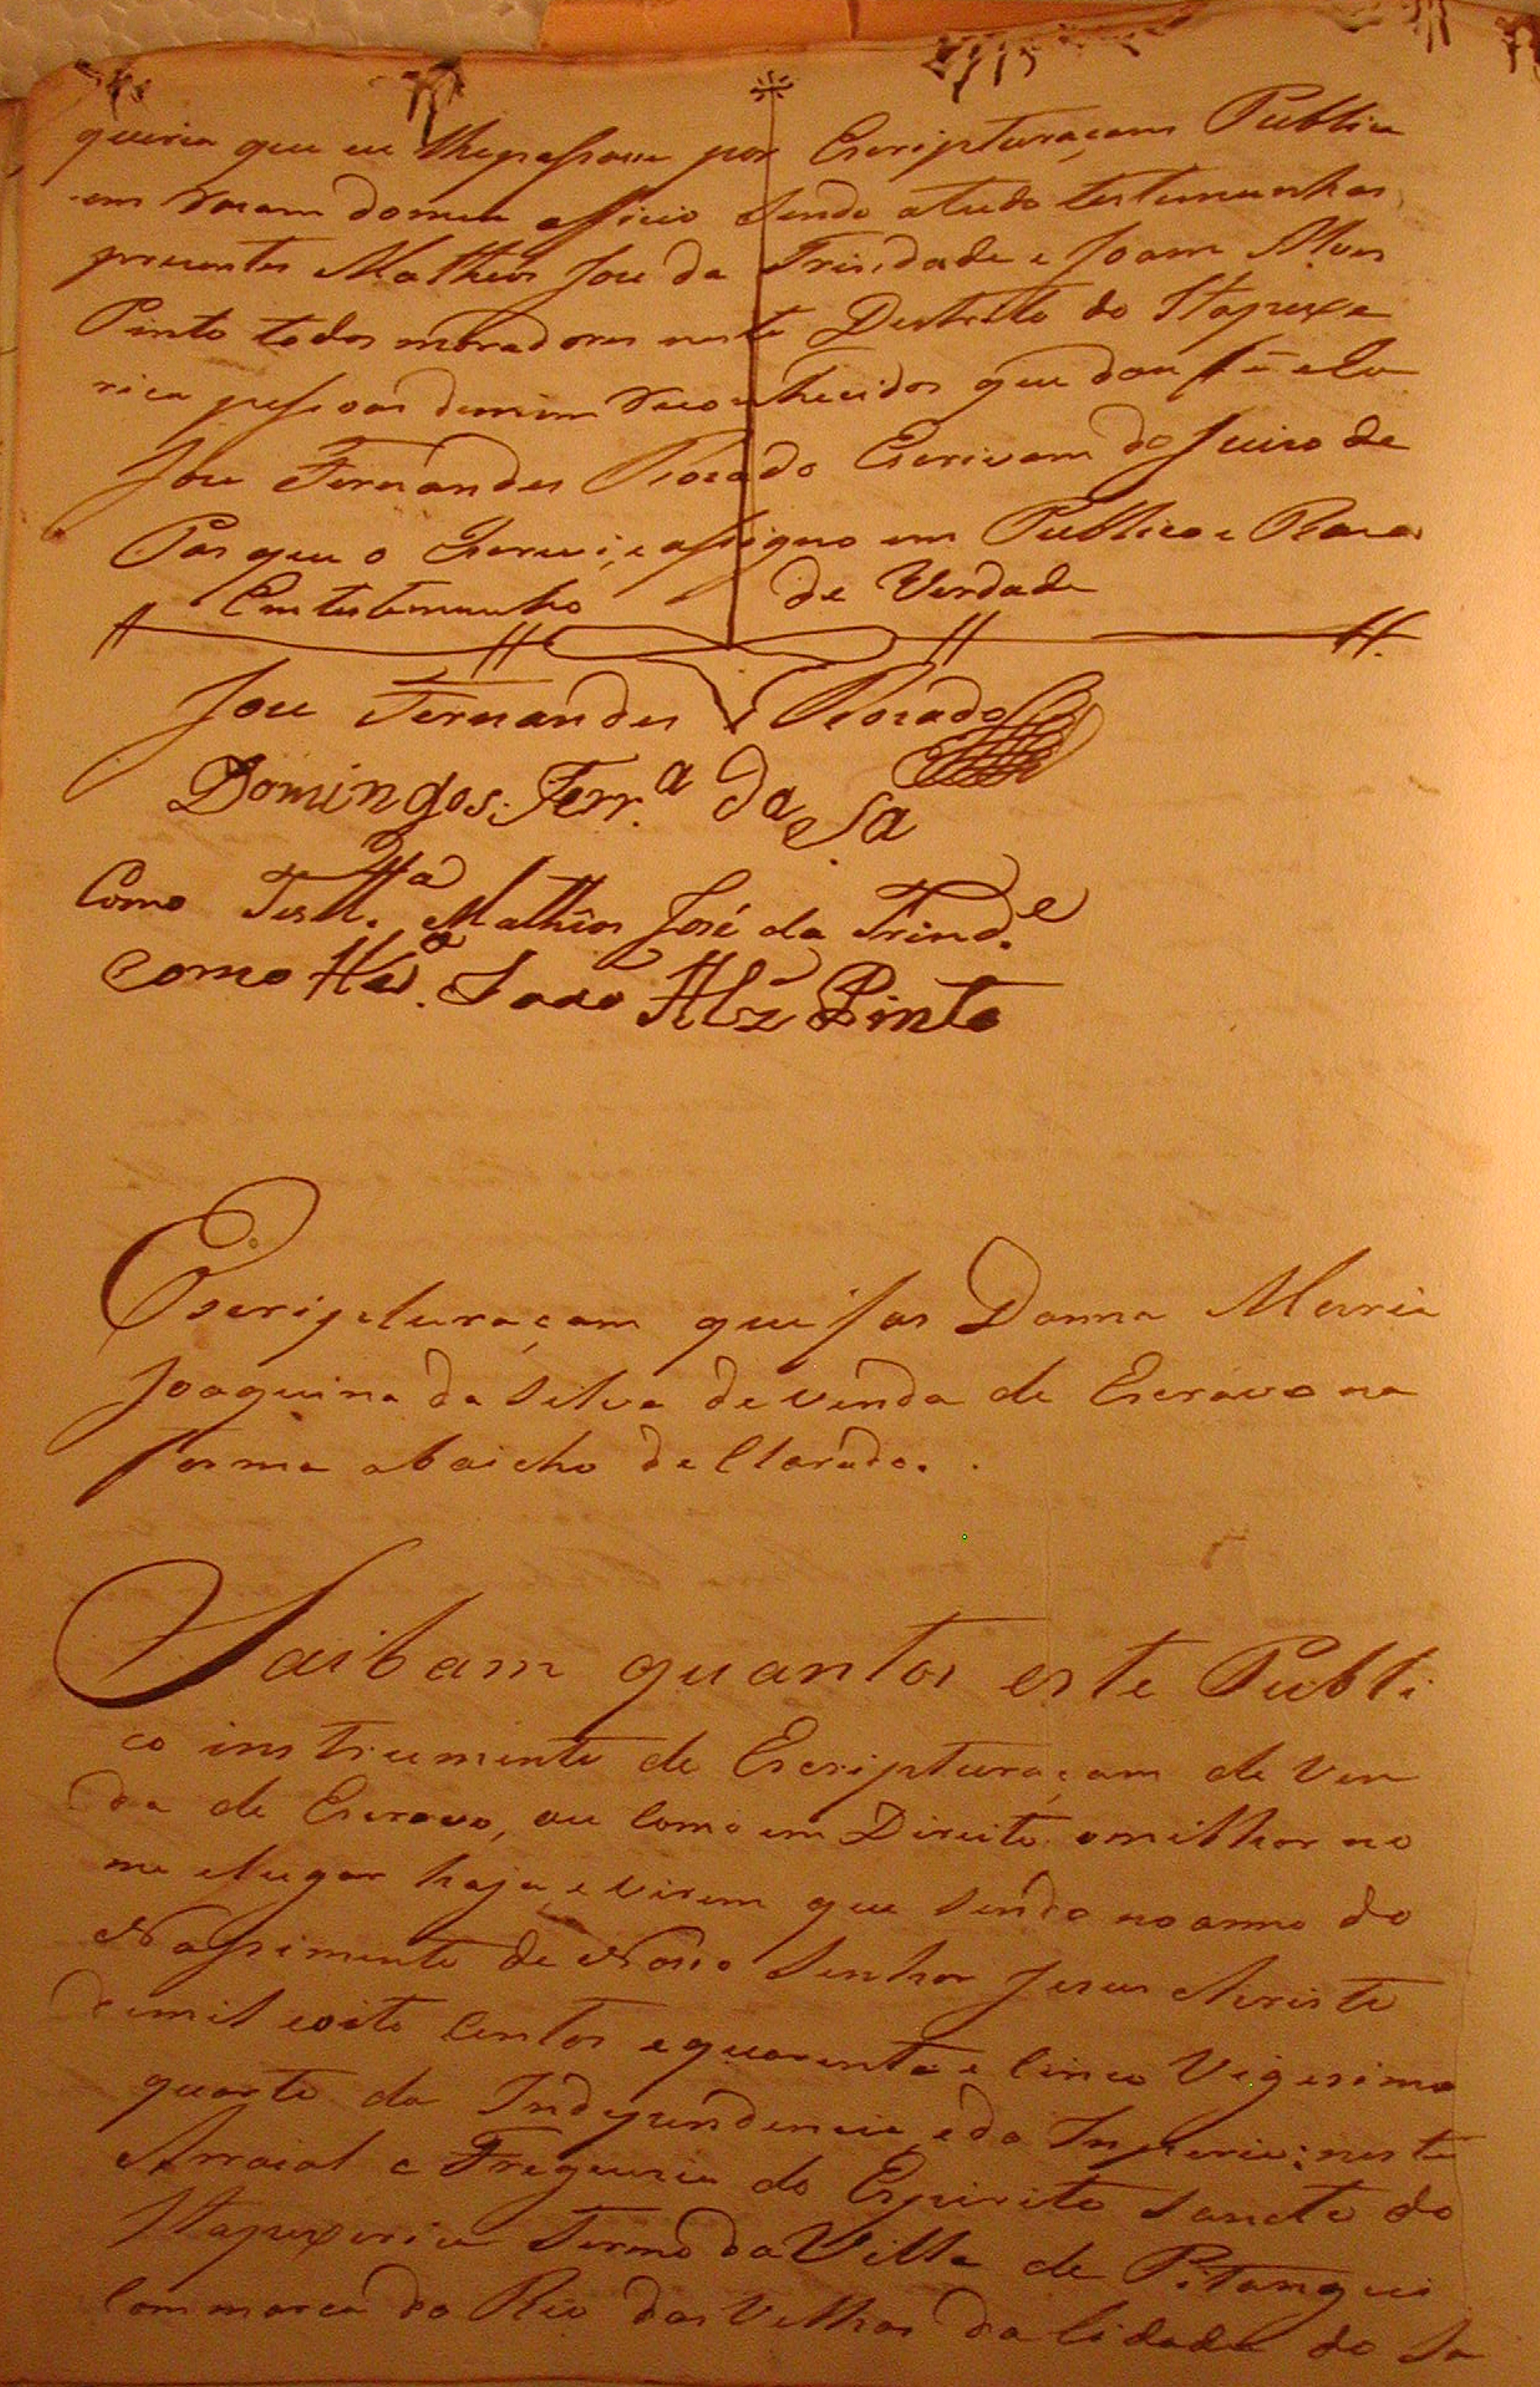 queria que eu lhepassase por Escripturaçam Publica
em Rasam domeu officio sendo atudo testemunhas
prezentes Matheus Joze da Trindade e Joam Alves
Pinto todos moradores neste Destrito do Itapexe
rica pessoas demim reconhecidas que dou fé e Eu
Joze Fernandes Rosado Escrivam do Juizo de
Pas que o Escrevi, e assigno em Publico e Raso
Em testemunho de Verdade
Joze Fernandes Rosado
Domingos Ferr.ª da S.ª
Como Test.ª Mathêos José da Trind.e
Como Joao Alz Pinto
Escripturaçam que fas Donna Maria
Joaquina da Silva de venda de Escravo na
forma abaicho deClarado.
Saibam quantos este Publi
co instrumento de Escripturaçam de Ven
da de Escravo, ou Como em Direito omilhor no
me elugar haja, e virem que sendo noanno do
Nassimento de Nosso Senhor Jesus Christo
demil eoito Centos equarenta e Cinco Vigesimo
quarto da Independencia, eda Imperio; neste
Arraial e Freguezia do Espirito Sancto do
Itapexerica Termo da Villa de Pitangui
Commarca do Rio das Velhas da Cidade do Sa